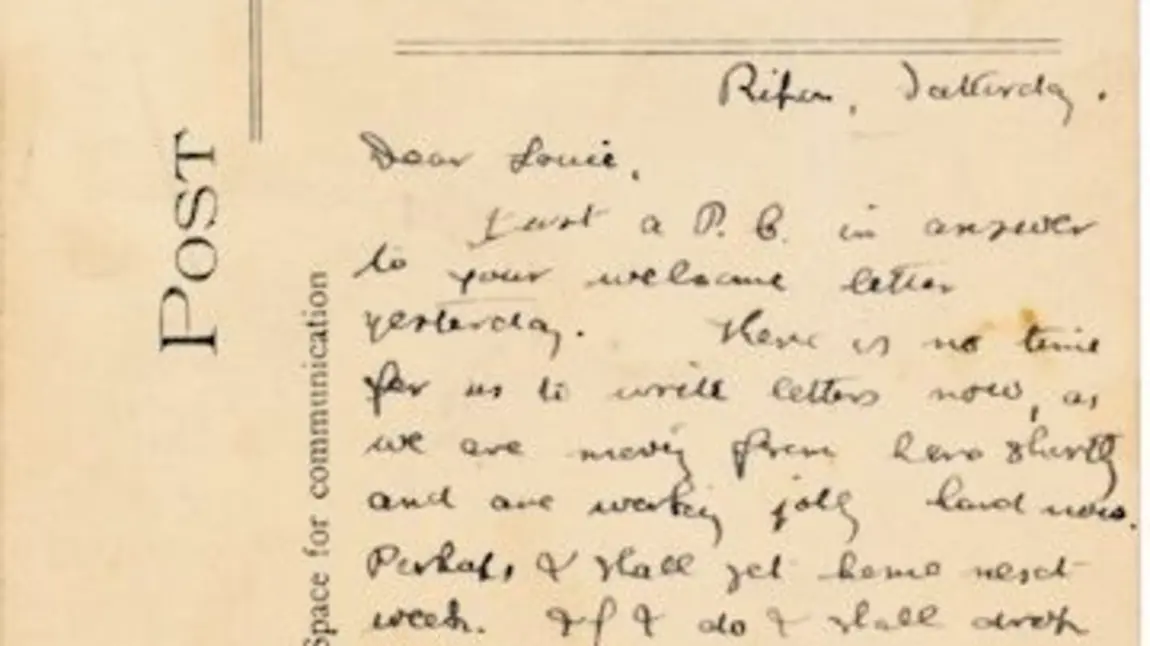 POST
Space for communication
Ripon, Satturday.
Dear Louie,
Just a P. C. in answer
to your welcome letter
yesterday. There is no time
for us to write letters now, as
we are moving from here shortly
and are working jolly hard now.
Perhaps I shall get home next
week. If I do I shall drop